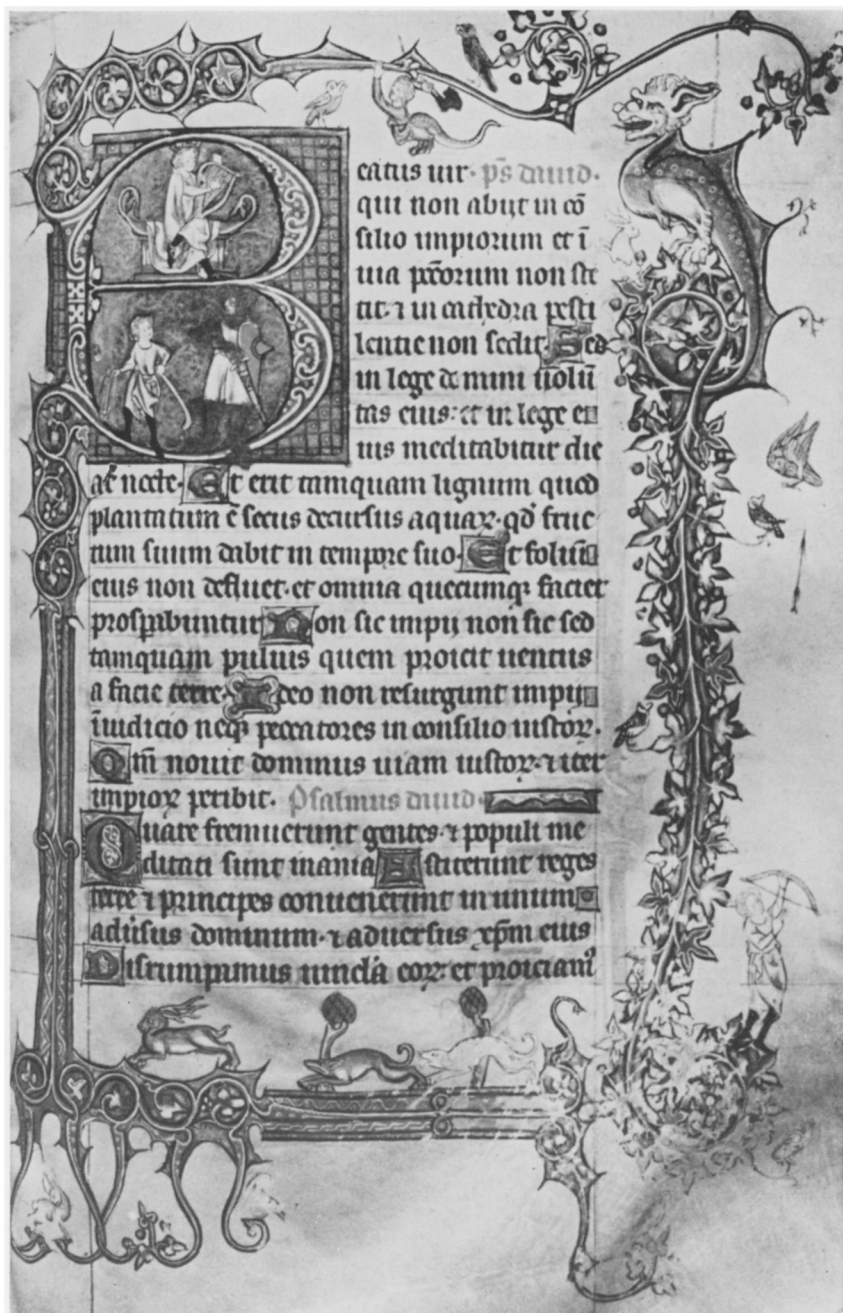 Beatus uir. ps̄ dauid.
qui non abijt in cō
silio impiorum et ī
uia pc̄corum non ste
tit. ⁊ in cathedra pesti
lentie non sedit. Sed
in lege domini uolū
tas eius: et in lege e
ius meditabitur die
ac nocte. Et erit tamquam lignum quod
plantatum ē secus decursus aquaꝝ. qd̓ fruc
tum suum dabit in tempore suo. Et foliū
eius non defluet. et omnia quecumqꝫ faciet
prosp̄abuntur Non sic impij non sic sed
tamquam puluis quem proicit uentus
a facie terre. Ideo non resurgunt impij
ī iudicio neqꝫ peccatores in consilio iustoꝝ.
Qm̄ nouit dominus uiam iustoꝝ. ⁊ iter
impioꝝ peribit. Psalmus dauid.
Quare fremuerunt gentes. ⁊ populi me
ditati sunt inania Astiterunt reges
terre ⁊ principes conuenerunt in unum
adūsus dominum. ⁊ aduersus xp̄m eius
Disrumpamus uincla eoꝝ: et proiciamꝰ